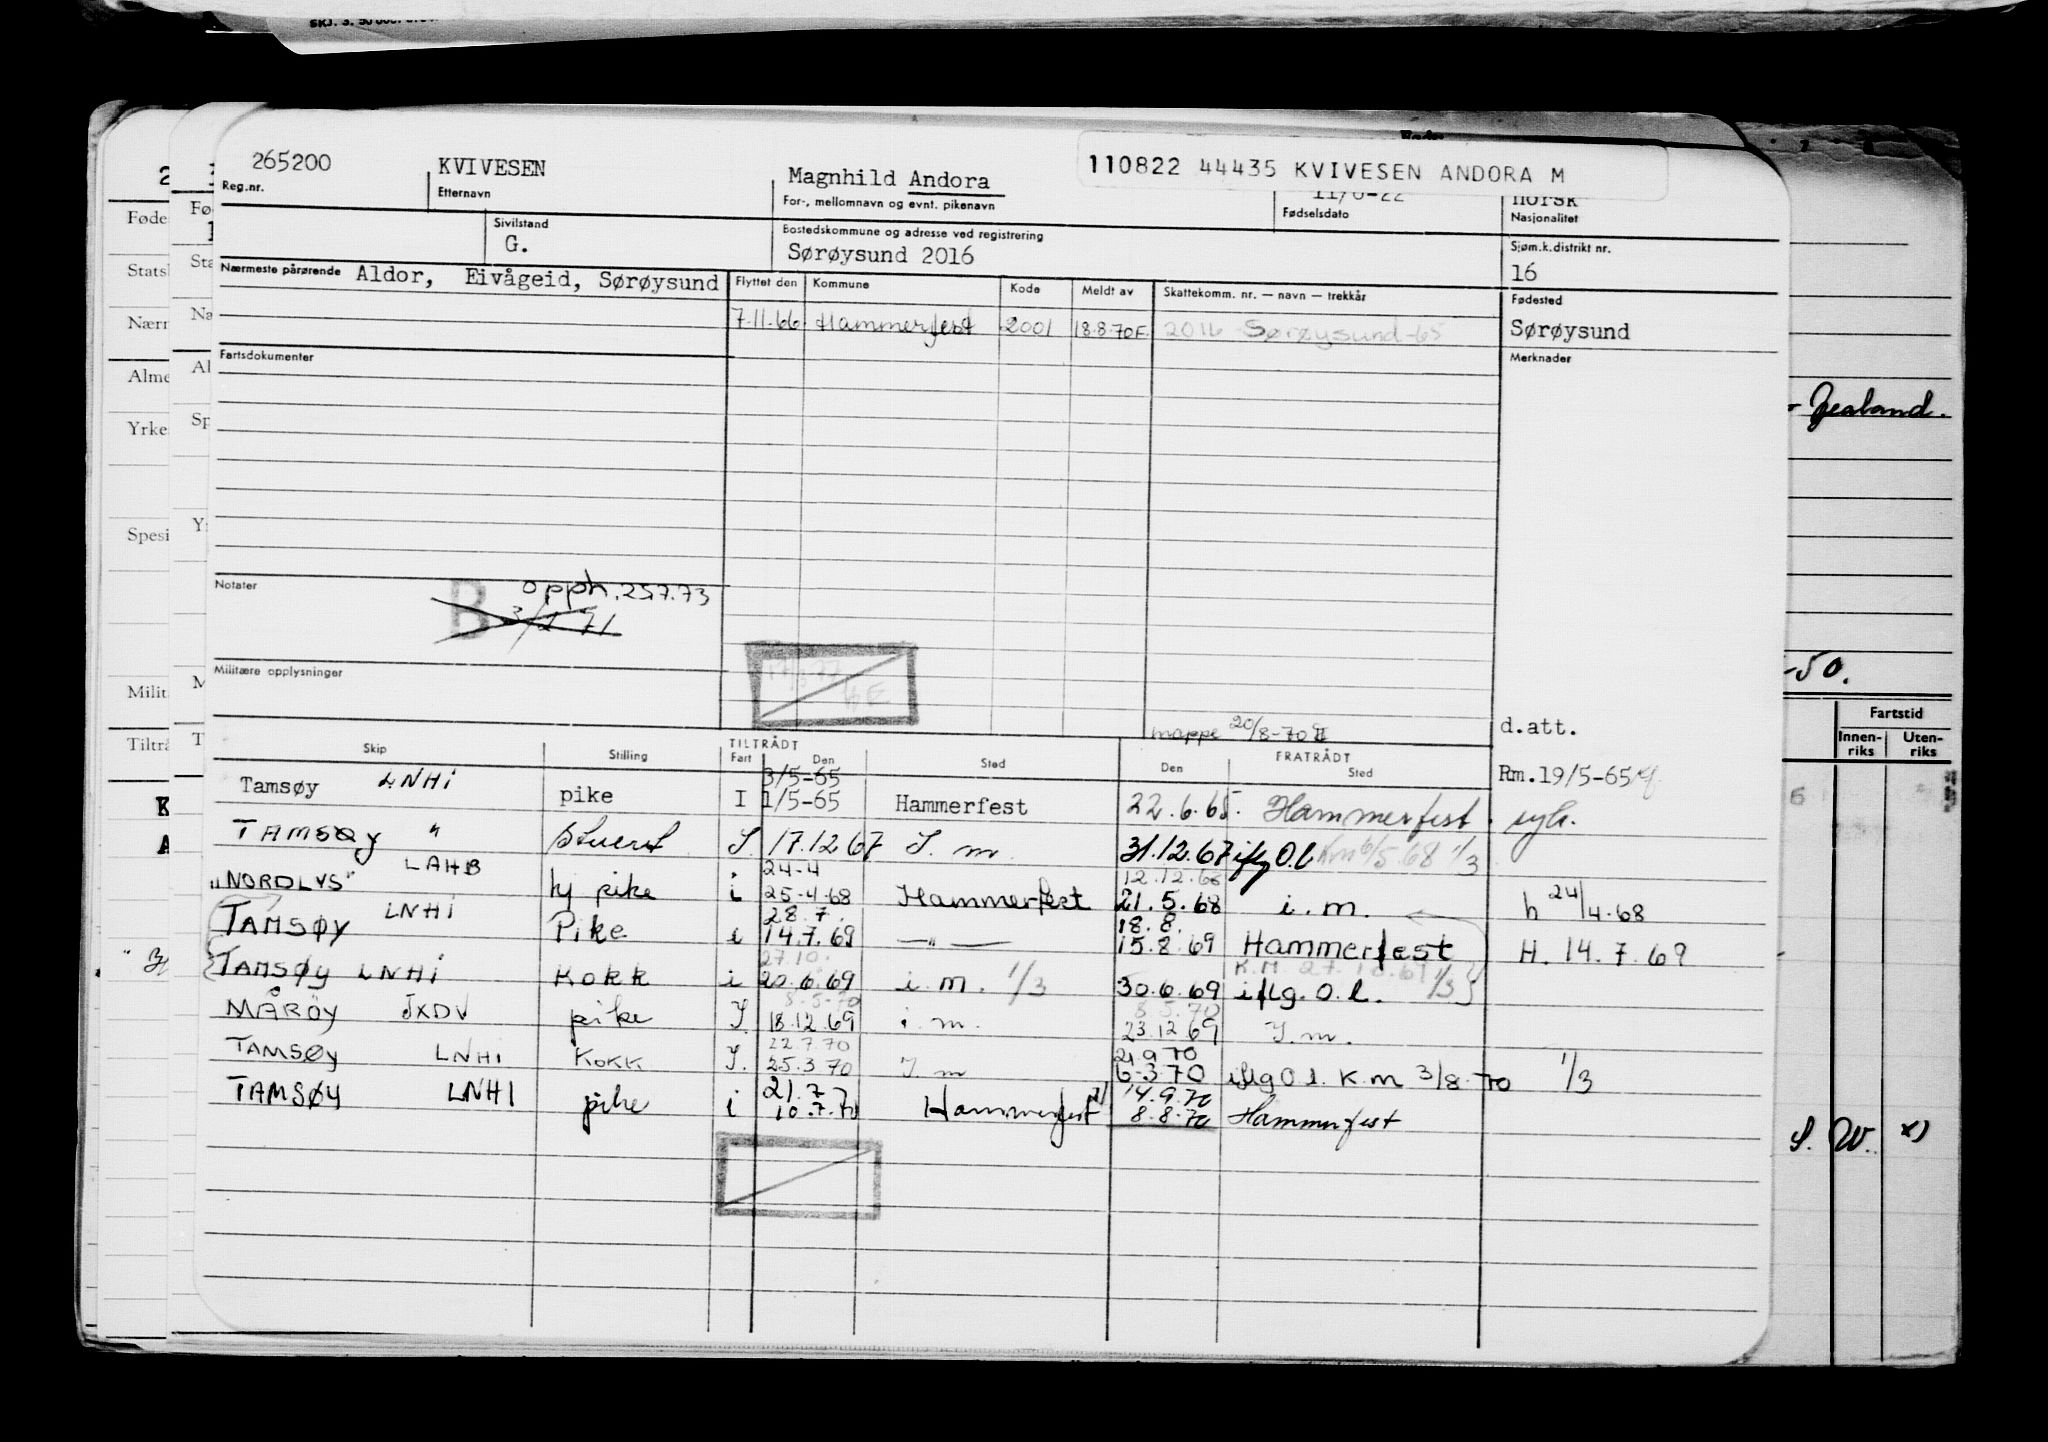 265200
Reg.nr.
KVIVESEN
Etternavn
Magnhild Andora
For-, mellomnavn og evnt. pikenavn
110822 44435 KVIVESEN ANDORA M
Fødselsdato
norsk
Nasjonalitet
Sivilstand
G.
Bostedskommune og adresse ved registrering
Sørøysund 2016
Sjøm.k.distrikt nr.
16
Nærmeste pårørende Aldor, Eivågeid, Sørøysund
Flyttet den Kommune Kode Meldt av Skattekomm. nr. — navn — trekkår
7.11.66 Hammerfest 2001 18.8.70F. 2016 Sørøysund -65
Fødested
Sørøysund
Fartsdokumenter
Merknader
Notater
B opph. 257.73
Militære opplysninger
mappe 20/8-70
d.att.
Skip Stilling TILTRÅDT Fart Den Sted Den FRATRÅDT Sted
Rm.19/5-65
3/5-65
Tamsøy LNHI pike I 1/5-65 Hammerfest 22.6.65. Hammerfest.
TAMSØY " Stuert 17.12 67 31.12.67 iflg O.l Km 6/5.68 1/3
24-4 12.12.68
"NORDLYS" LAHB hj pike i 25-4.68 Hammerfest 21.5.68 i.m. h 24/4.68
28.7. 18.8.
TAMSØY LNHI Pike i 14.7.69 —"— 15.8.69 Hammerfest H. 14.7.69
27.10. K.M. 27.10.69 1/3
TAMSØY LNHI Kokk i 20.6.69 i.m. 1/3 30.6.69 iflg. O.l.
8-5-70 8.5.70
MÅRØY JXDV pike 18.12.69 i.m. 23.12 69
22.7.70
TAMSØY LNHI KOKK 25.3 70 6-3 70 iflg O l. K m 3/8-70 1/3
21.7.7 14.9.70
TAMSØY LNHI pike i 10.7.70 Hammerfest 8.8.70 Hammerfest
Føde
Statsl
Nærn
Alme
Yrke
Spesi
Milit
Tiltrå
Zealand.
-50.
Fartstid
Innen-riks Uten-riks
S. W. x)